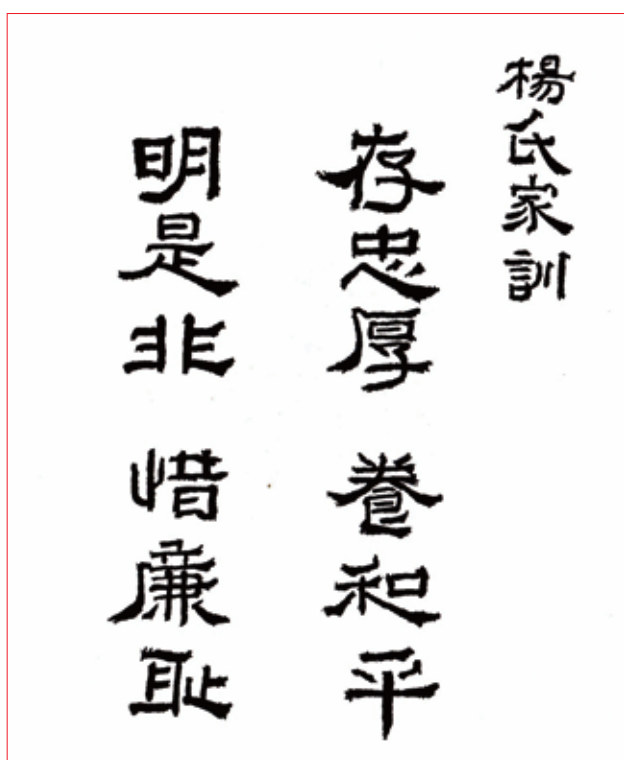 楊氏家訓
存忠厚 養和平
明是非 惜廉耻